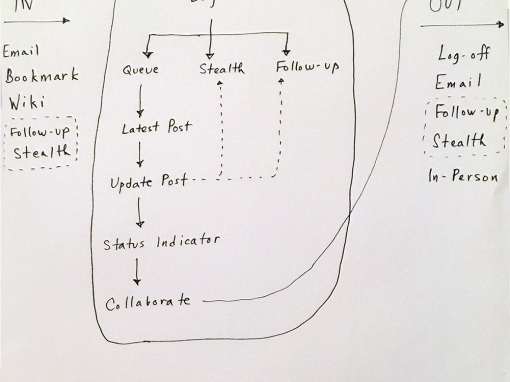 IN
OUT
Email
Bookmark
Wiki
Follow-up
Stealth
Queue
Stealth
Follow-up
Latest Post
Update Post
Status Indicator
Collaborate
Log-off
Email
Follow-up
Stealth
In-Person